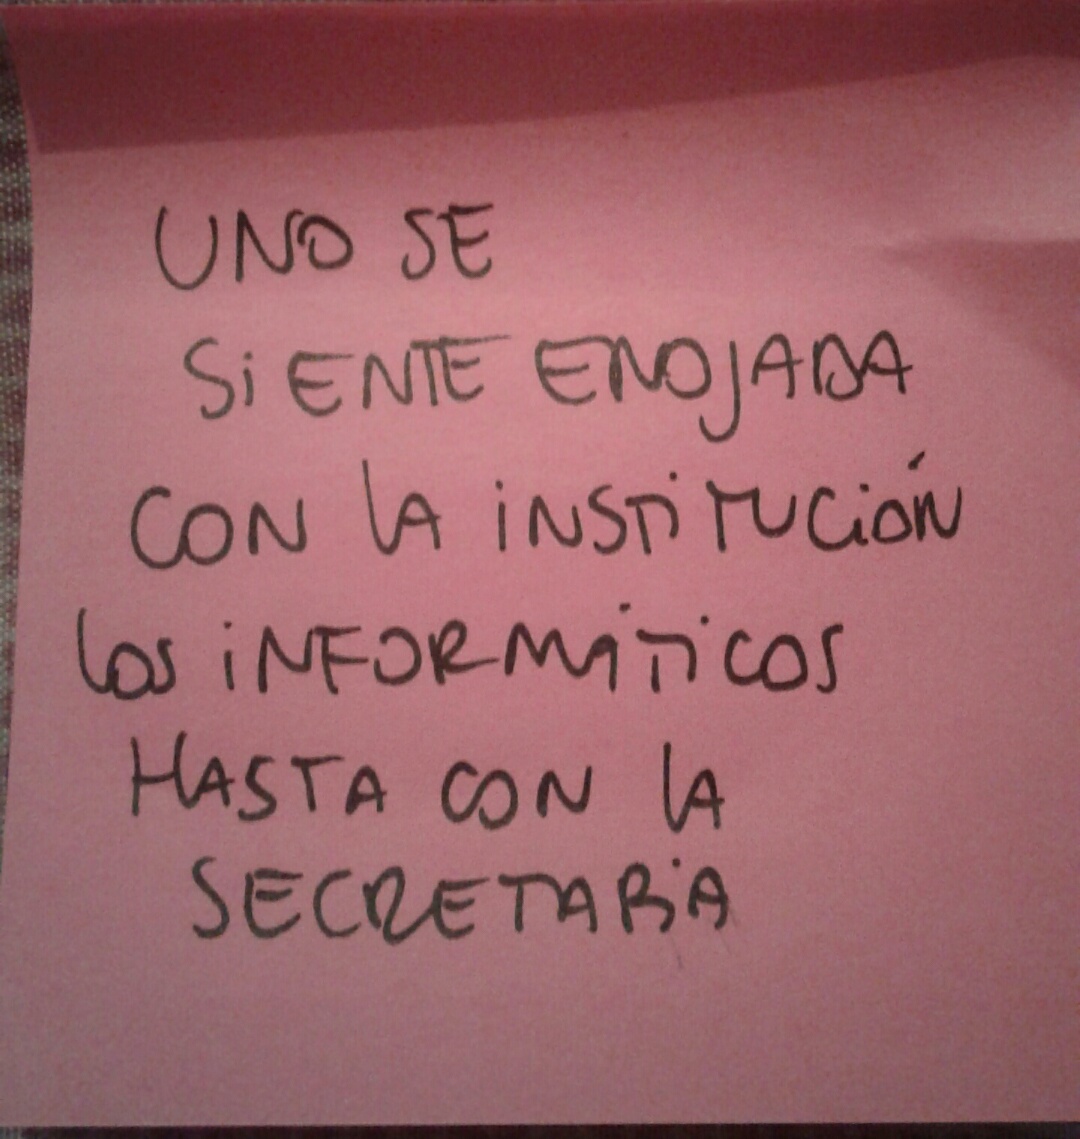 UNO SE
SiENTE ENOJADA
CON LA iNSTiTUCiÓN
LOS iNFORMÁTiCOS
HASTA CON LA
SECRETARiA